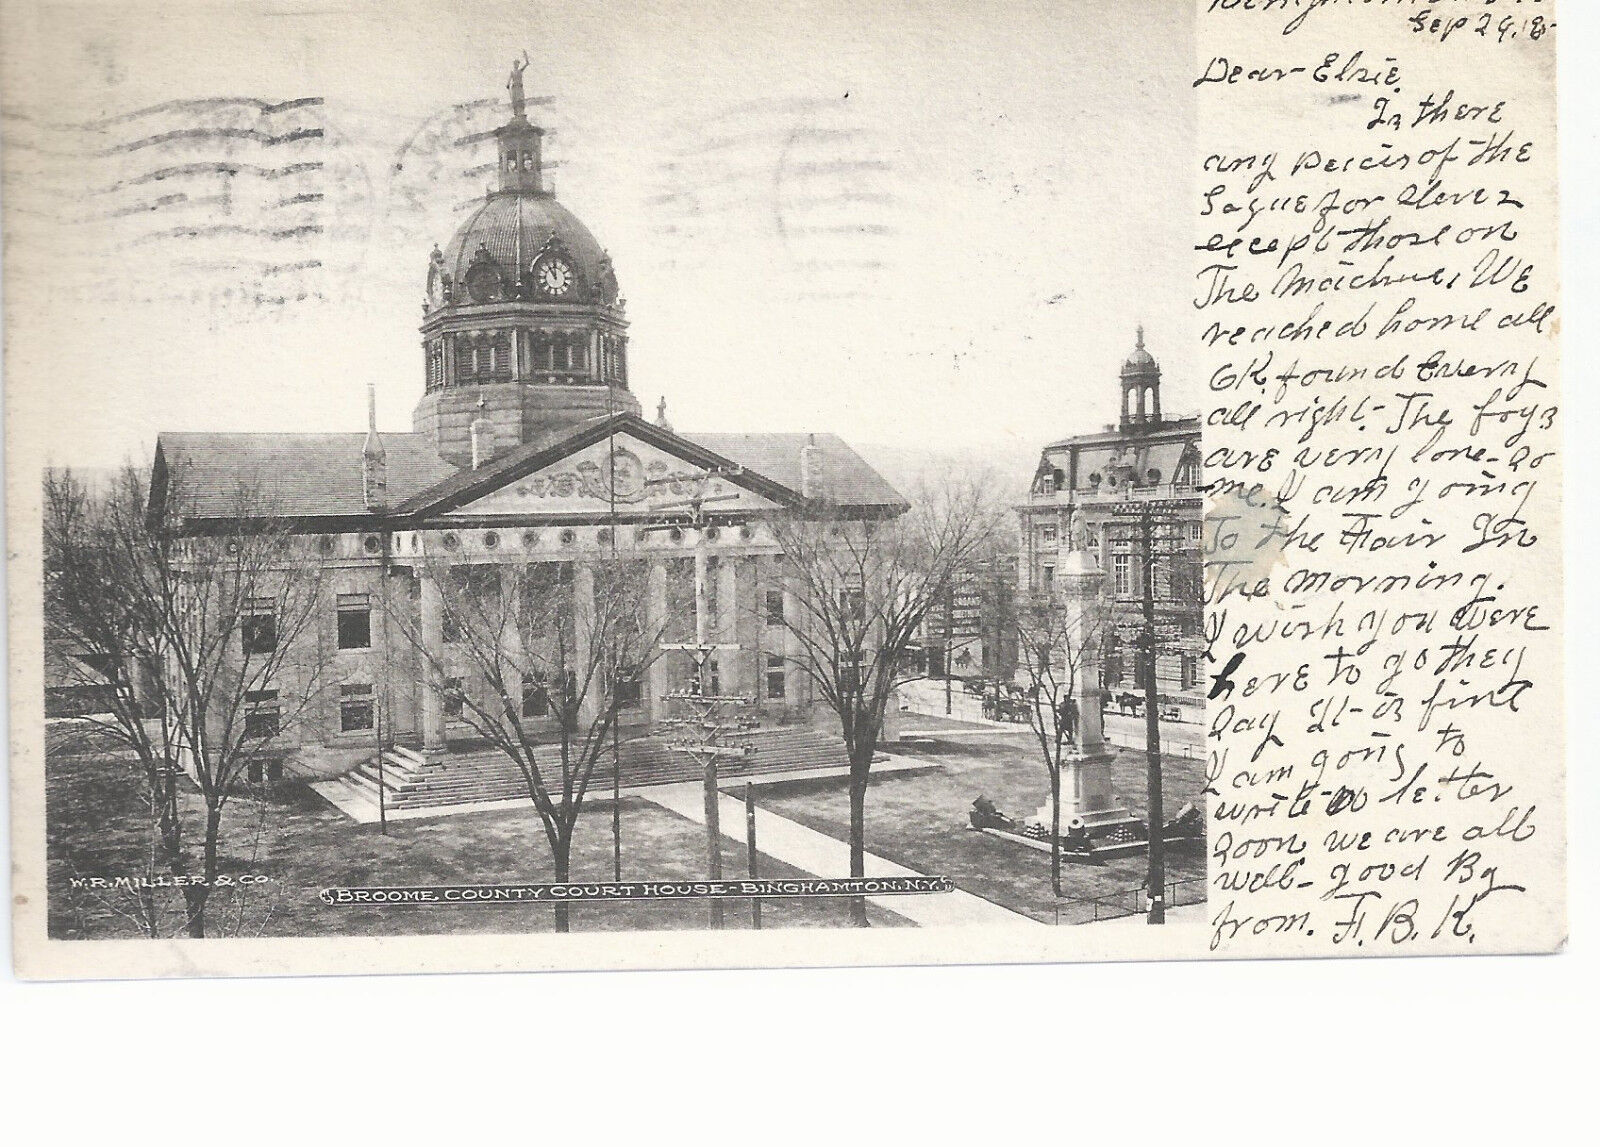 Sep 29,
Dear Elsie
Is there
any peices of the
for sleves
except those on
The Machine, We
reached home all
OK. found Every
all right. The foys
are very lone-so
me. I am going
To the Fair In
The morning.
I wish you were
here to go they
day It-is fine
I am going to
write letter
soon we are all
well- good By
from. F. B. K.
W.R. MILLER & CO.
BROOME COUNTY COURT HOUSE - BINGHAMTON, N.Y.